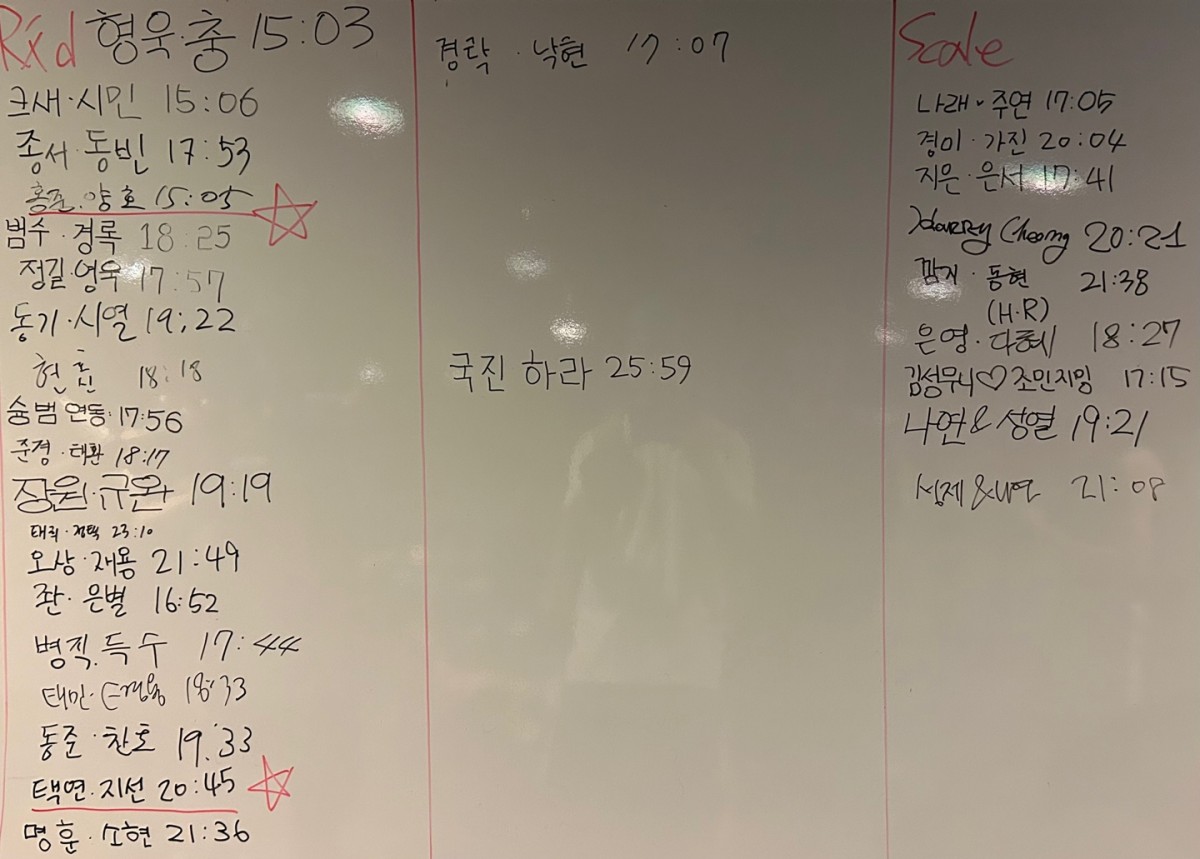 Rx'd 형욱·충 15:03
크새·시민 15:06
종서·동빈 17:53
홍준·양호 15:05
범수·경록 18:25
정길·영욱 17:57
동기·시열 19:22
18:18
숭범 연동·17:56
준경·태환 18:17
장원·규완 19:19
23:10
오상·재용 21:49
좌·은별 16:52
병직·득수 17:44
태민· 18:33
동준·찬호 19:33
택연·지선 20:45
명훈·소현 21:36
경락·낙현 17:07
국진 하라 25:59
Scale
나래·주연 17:05
경미·가진 20:04
지은·은서 17:41
Harry Cheong 20:21
깜지·동현 21:38
(H·R)
은영·다혜 18:27
김성무니♡조민지밍 17:15
나연&성열 19:21
성제& 21:08